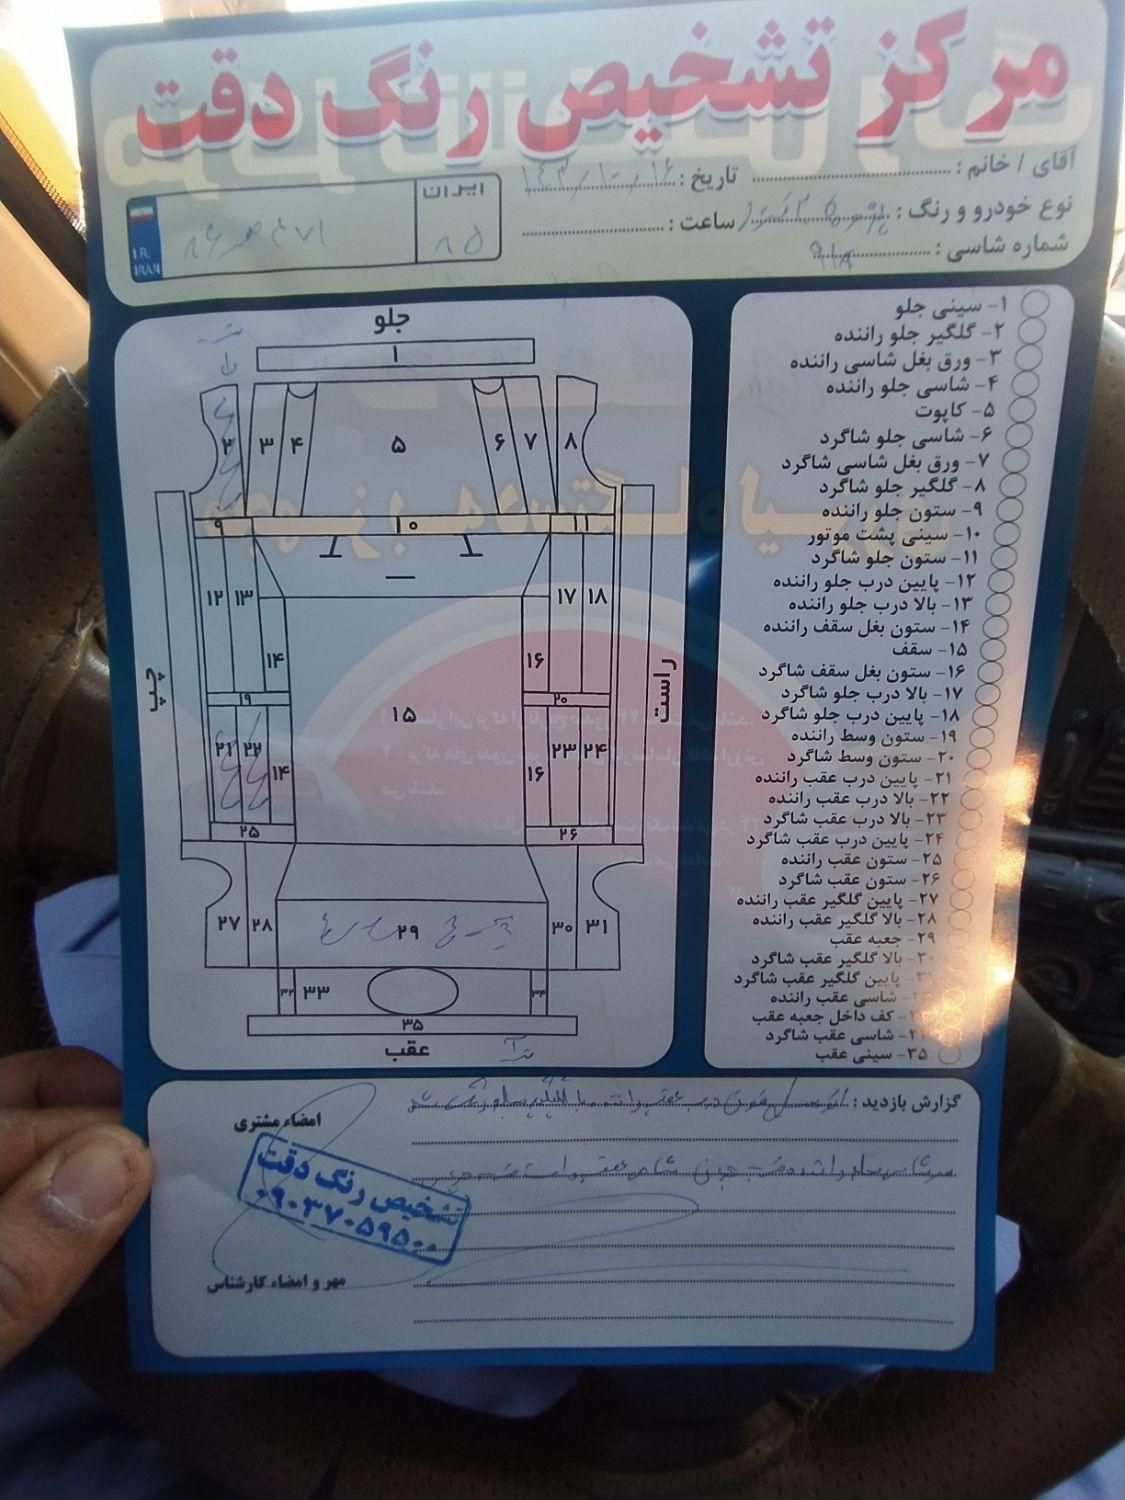 مرکز تشخیص رنگ دقت
آقای / خانم :
تاریخ :
نوع خودرو و رنگ :
ساعت :
شماره شاسی : ۹۱۸
ایران
I.R.
IRAN
۸۵
جلو
۱
۲
۳
۴
۵
۶
۷
۸
۹
۱۰
۱۱
۱۲
۱۳
۱۷
۱۸
۱۴
۱۶
چپ
راست
۱۹
۲۰
۱۵
۲۱
۲۲
۱۴
۱۶
۲۳
۲۴
۲۵
۲۶
۲۷
۲۸
۲۹
۳۰
۳۱
۳۲
۳۳
۳۴
۳۵
عقب
۱- سینی جلو
۲- گلگیر جلو راننده
۳- ورق بغل شاسی راننده
۴- شاسی جلو راننده
۵- کاپوت
۶- شاسی جلو شاگرد
۷- ورق بغل شاسی شاگرد
۸- گلگیر جلو شاگرد
۹- ستون جلو راننده
۱۰- سینی پشت موتور
۱۱- ستون جلو شاگرد
۱۲- پایین درب جلو راننده
۱۳- بالا درب جلو راننده
۱۴- ستون بغل سقف راننده
۱۵- سقف
۱۶- ستون بغل سقف شاگرد
۱۷- بالا درب جلو شاگرد
۱۸- پایین درب جلو شاگرد
۱۹- ستون وسط راننده
۲۰- ستون وسط شاگرد
۲۱- پایین درب عقب راننده
۲۲- بالا درب عقب راننده
۲۳- بالا درب عقب شاگرد
۲۴- پایین درب عقب شاگرد
۲۵- ستون عقب راننده
۲۶- ستون عقب شاگرد
۲۷- پایین گلگیر عقب راننده
۲۸- بالا گلگیر عقب راننده
۲۹- جعبه عقب
۳۰- بالا گلگیر عقب شاگرد
۳۱- پایین گلگیر عقب شاگرد
۳۲- شاسی عقب راننده
۳۳- کف داخل جعبه عقب
۳۴- شاسی عقب شاگرد
۳۵- سینی عقب
گزارش بازدید :
امضاء مشتری
تشخیص رنگ دقت
۰۹۰۳۷۰۵۹۵۰۰
مهر و امضاء کارشناس